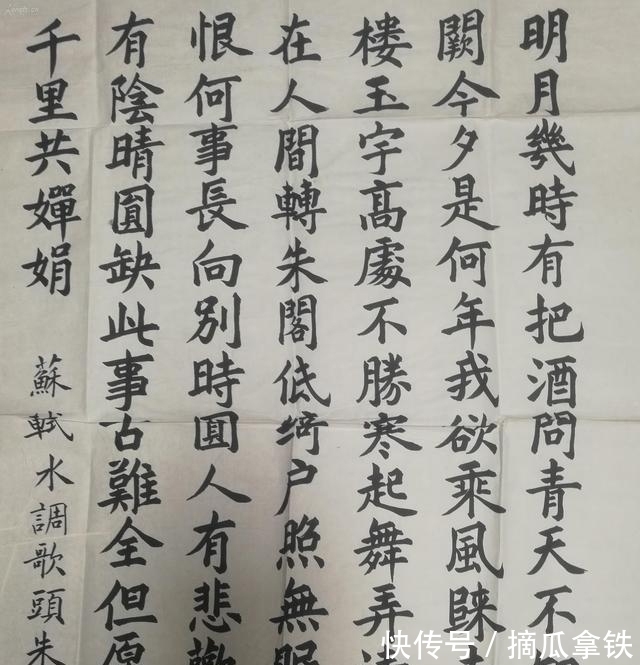 明月幾時有把酒問青天不
闕今夕是何年我欲乘風歸
楼玉宇髙處不勝寒起舞弄
在人間轉朱閣低绮户照無眠
恨何事長向别時圓人有悲歡
有陰晴圓缺此事古難全但原
千里共嬋娟
蘇軾水調歌頭朱
快传号／摘瓜拿铁